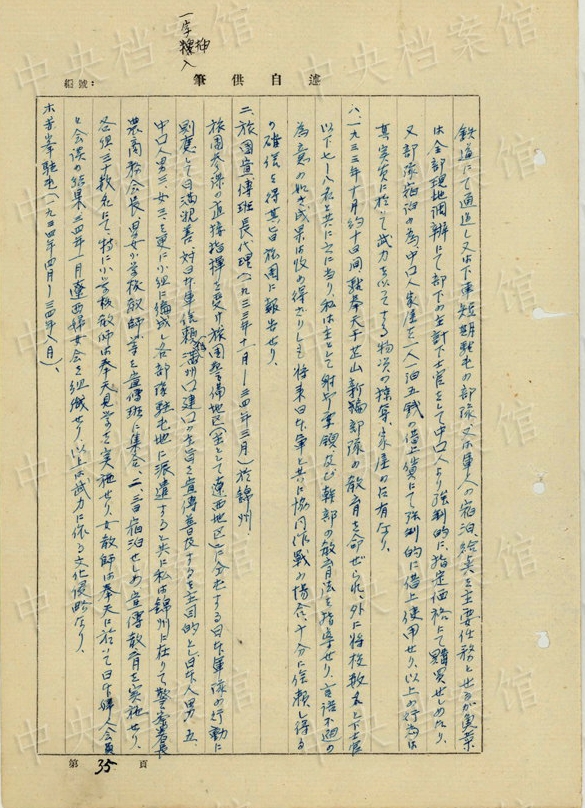 一字挿入
粮
編號：
筆供自述
鉄道にて通過し又は下車短期駐屯の部隊又は軍人の宿泊、給与を主要任務とせるが魚菜
は全部現地調辨にて部下の主計下士官をして中口人より強制的に指定価格にて購買せしめたり、
又部隊宿泊の為、中口人家屋を一人一泊五銭の借上賃にて強制的に借上使用せり、以上の行為は
其実質に於て武力を以てする物資の掠奪、家屋の占有なり、
八、一九三三年十月約十日間 奉天于芷山新編部隊の教育を命ぜられ、外に将校数名と下士官
以下七〜八名と共に之に当り、私は主として射撃要領及び幹部の教育法を指導せり、言語不通の
為意の如き成果は収め得ざりしも将来日本軍と共に協同作戦の場合、十分に信頼し得る
の確信を得其旨旅団に報告せり、
二、旅団宣伝班長代理（一九三三年十月—三四年三月）於錦州、
旅団参謀の直接指揮を受け旅団警備地区（主として遼西地区）に分屯する日本軍隊の行動に
則應して日満親善、対日本軍信頼、満州口建口の主旨を宣傳普及するを主目的とし日本人男五、
中口人男三、女三を更に小組に編成し各部隊駐屯地に派遣すると共に私は錦州に在りて警察署長
農商務会長、県女小学校教師等を宣傳班に集合、二、三日宿泊せしめ宣傳教育を実施せり、
各組三十数名にて、特に小学校教師は奉天見学を実施せり、女教師は奉天に於いて日本婦人会員
と会談の結果三四年一月遼西婦女会を組織せり、以上は武力に依る文化侵略なり、
駐屯（一九三四年四月—三四年八月）、
第 35 頁
中央档案馆